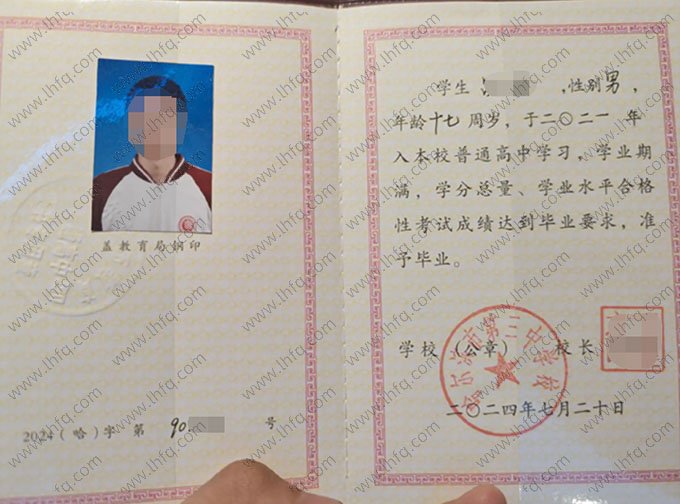 盖教育局钢印
2024（哈）字 第 90. 号
学生 ,性别男，
年龄十七周岁，于二〇二一年
入本校普通高中学习，学业期
满，学分总量、学业水平合格
性考试成绩达到毕业要求，准
予毕业。
学校（公章） 校长
市第三中学校
二〇二四年七月二十日
www.lhfq.com